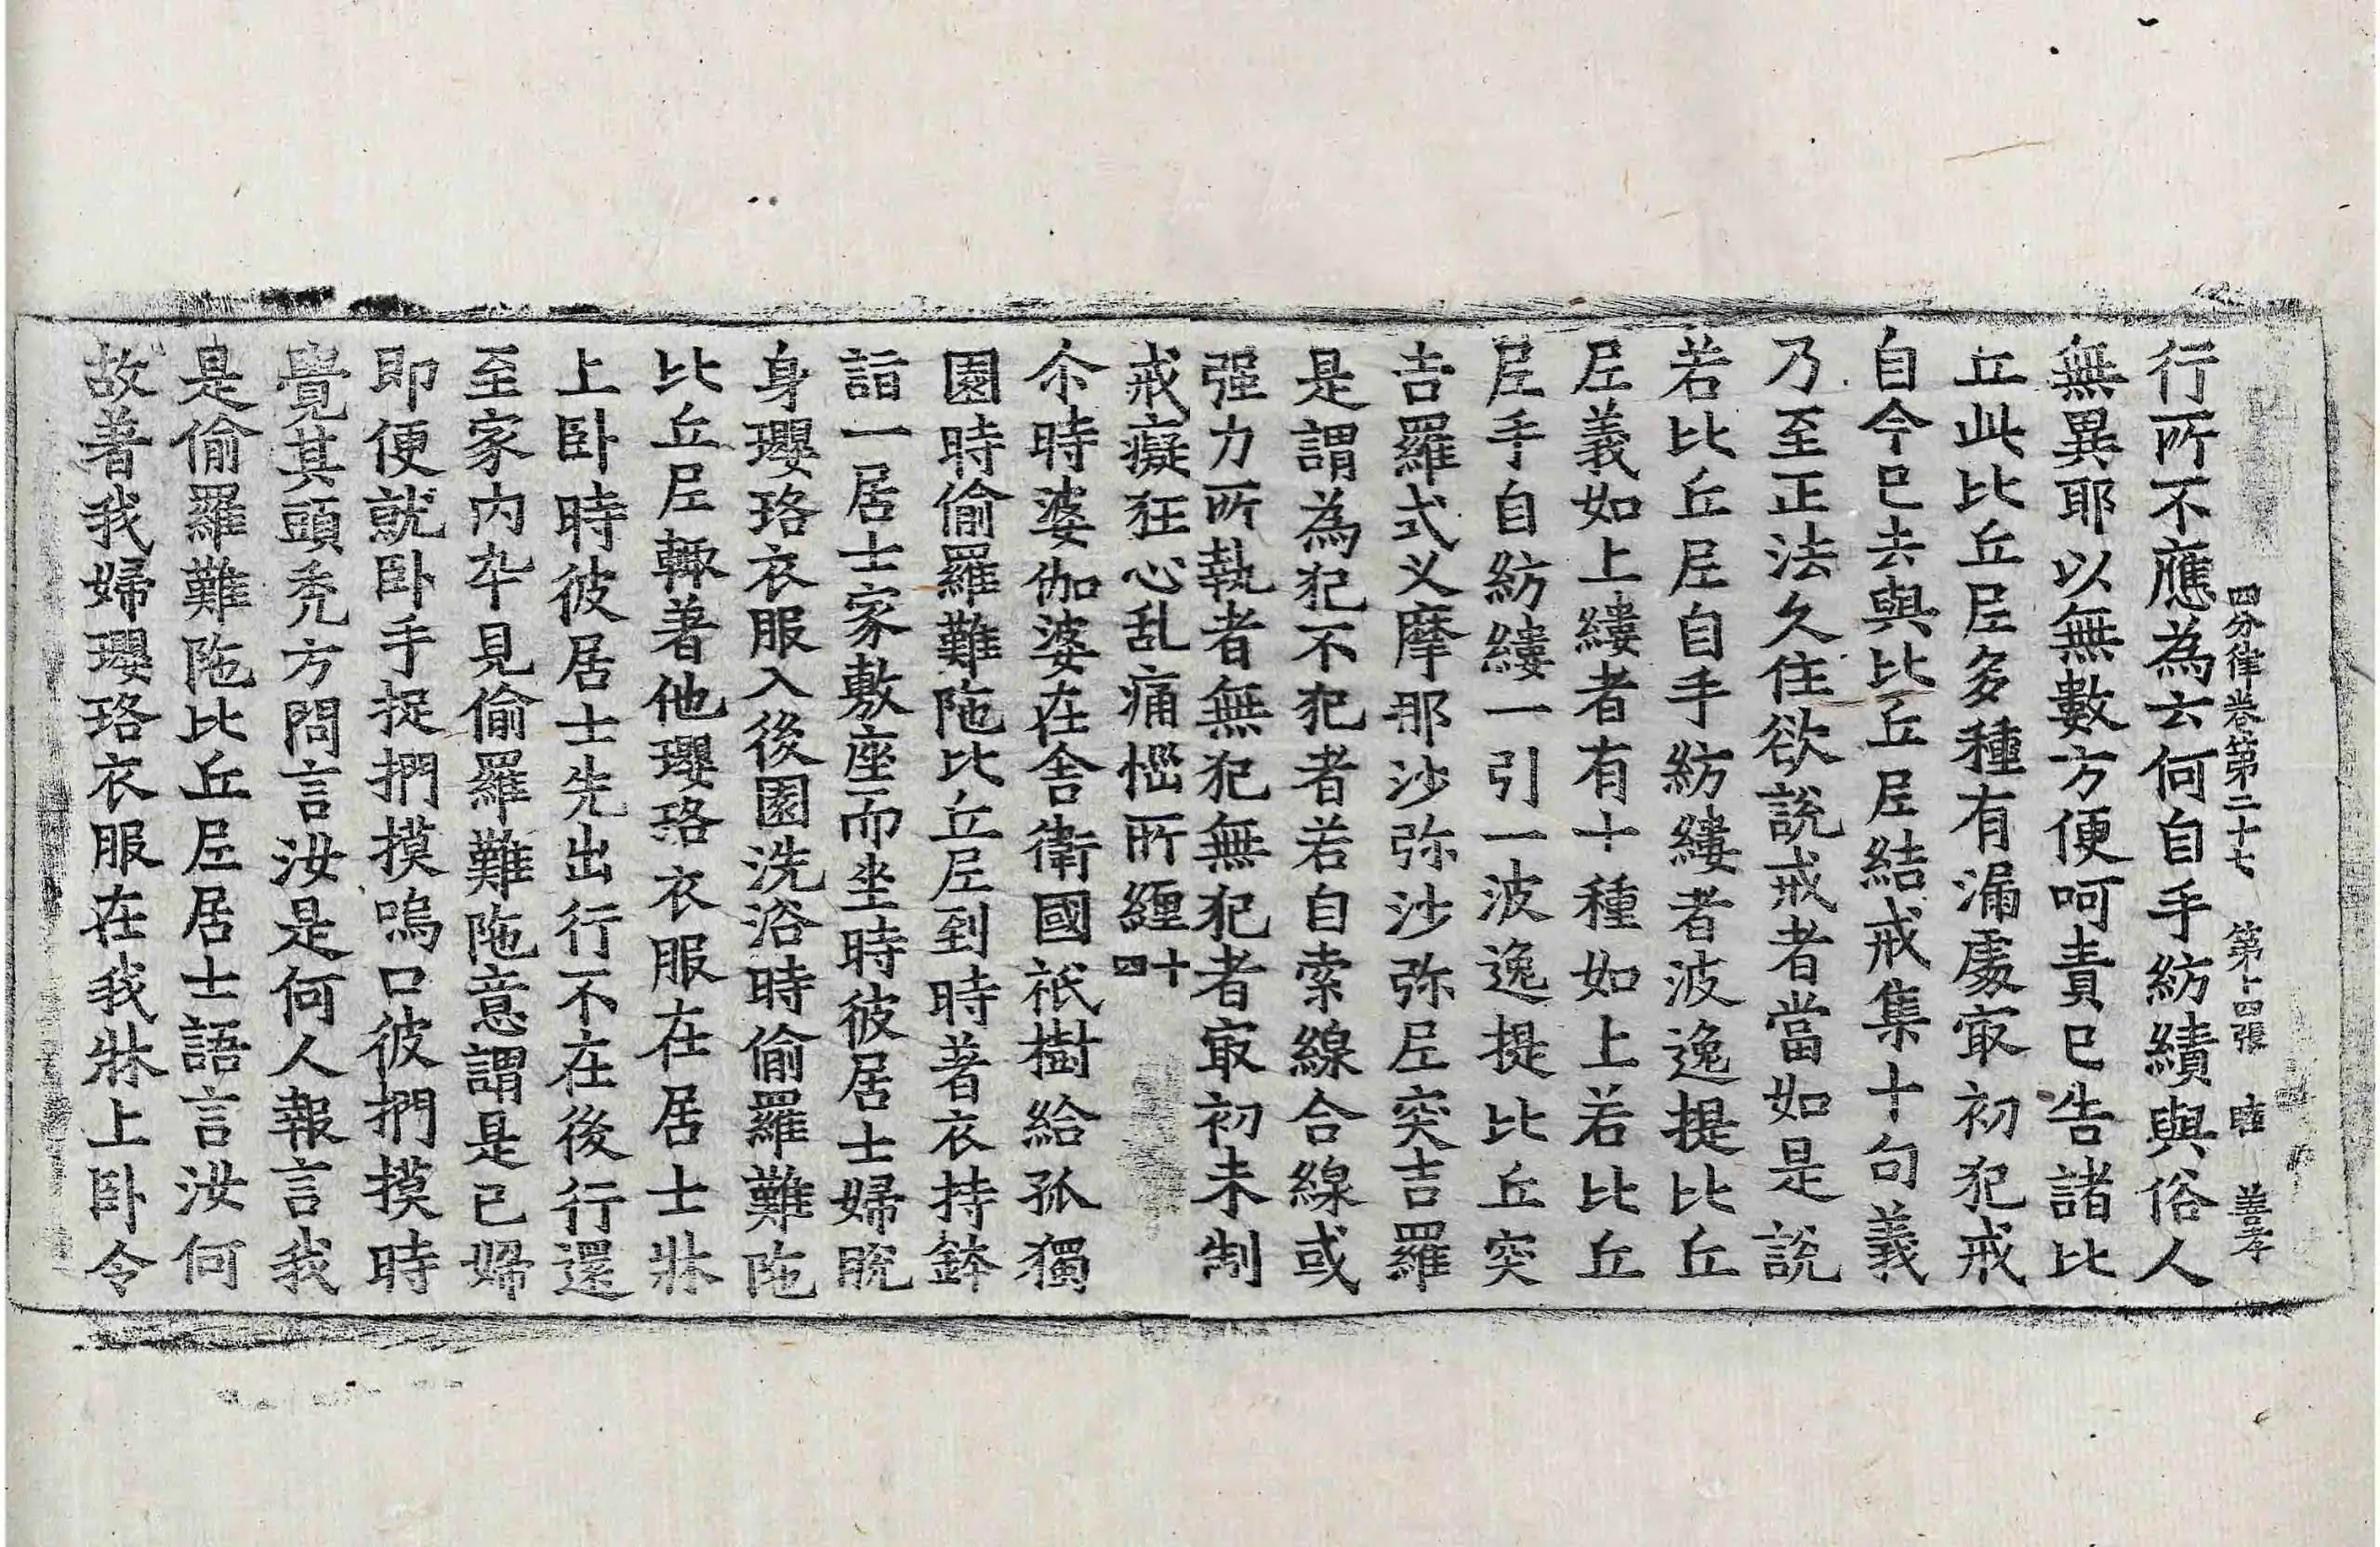 四分律卷第二十七 第十四張 睦 善孝
行所不應為云何自手紡績與俗人
無異耶以無數方便呵責已告諸比
丘此比丘尼多種有漏處㝡初犯戒
自今已去與比丘尼結戒集十句義
乃至正法久住欲說戒者當如是說
若比丘尼自手紡縷者波逸提比丘
尼義如上縷者有十種如上若比丘
尼手自紡縷一引一波逸提比丘突
吉羅式叉摩那沙弥沙弥尼突吉羅
是謂為犯不犯者若自索線合線或
强力所執者無犯無犯者㝡初未制
戒癡狂心乱痛惱所纏四十
尒時婆伽婆在舍衛國祇樹給孤獨
園時偷羅難陁比丘尼到時著衣持鉢
詣一居士家敷座而坐時彼居士婦脫
身瓔珞衣服入後園洗浴時偷羅難陁
比丘尼輙著他瓔珞衣服在居士牀
上卧時彼居士先出行不在後行還
至家內卒見偷羅難陁意謂是己婦
即便就卧手捉捫摸嗚口彼捫摸時
覺其頭禿方問言汝是何人報言我
是偷羅難陁比丘尼居士語言汝何
故著我婦瓔珞衣服在我牀上卧令